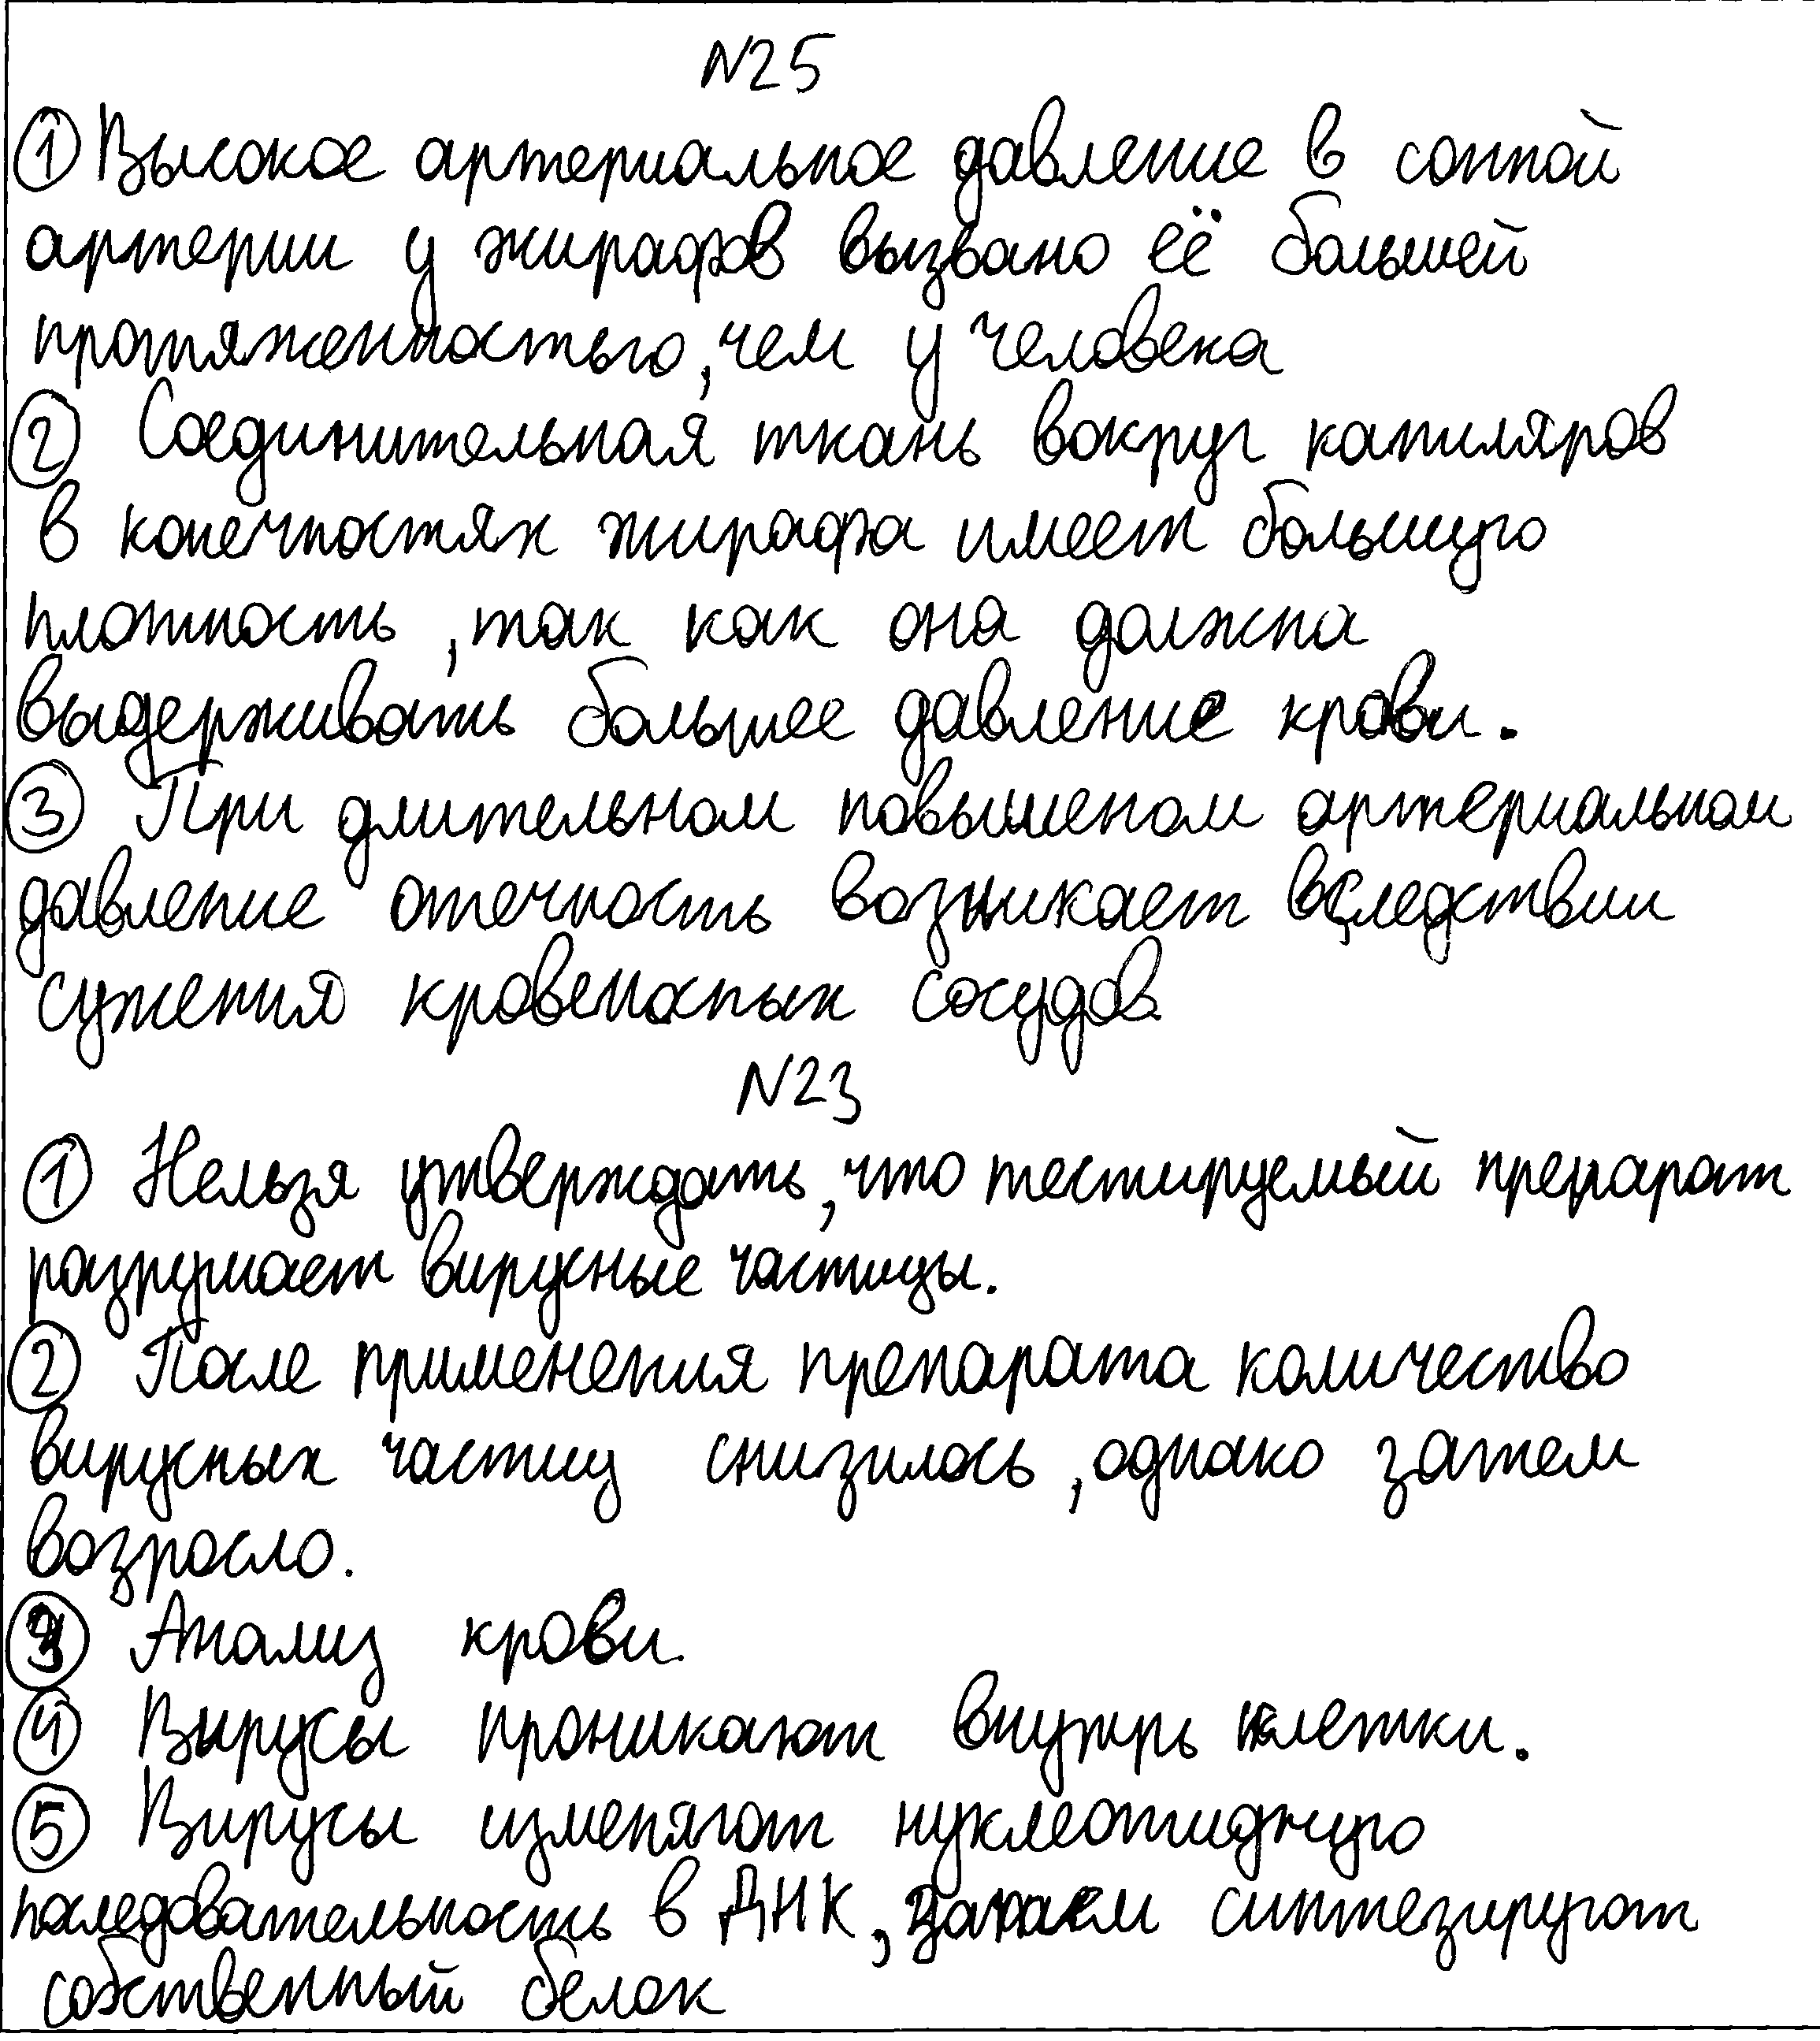 N25
① Высокое артериальное давление в сонной
артерии у жирафов вызвано её большей
протяженностью, чем у человека
② Соединительная ткань вокруг капиляров
в конечностях жирафа имеет большую
плотность, так как она должна
выдерживать большее давление крови.
③ При длительном повышеном артериальном
давление отечность возникает вследствии
сужения кровеносных сосудов.
N23
① Нельзя утверждать, что тестируемый препарат
разрушает вирусные частицы.
② После применения препарата количество
вирусных частиц снизилось, однако затем
возросло.
③ Анализ крови.
④ Вирусы проникают внутрь клетки.
⑤ Вирусы изменяют нуклеотидную
последовательность в ДНК, затем синтезируют
собственный белок